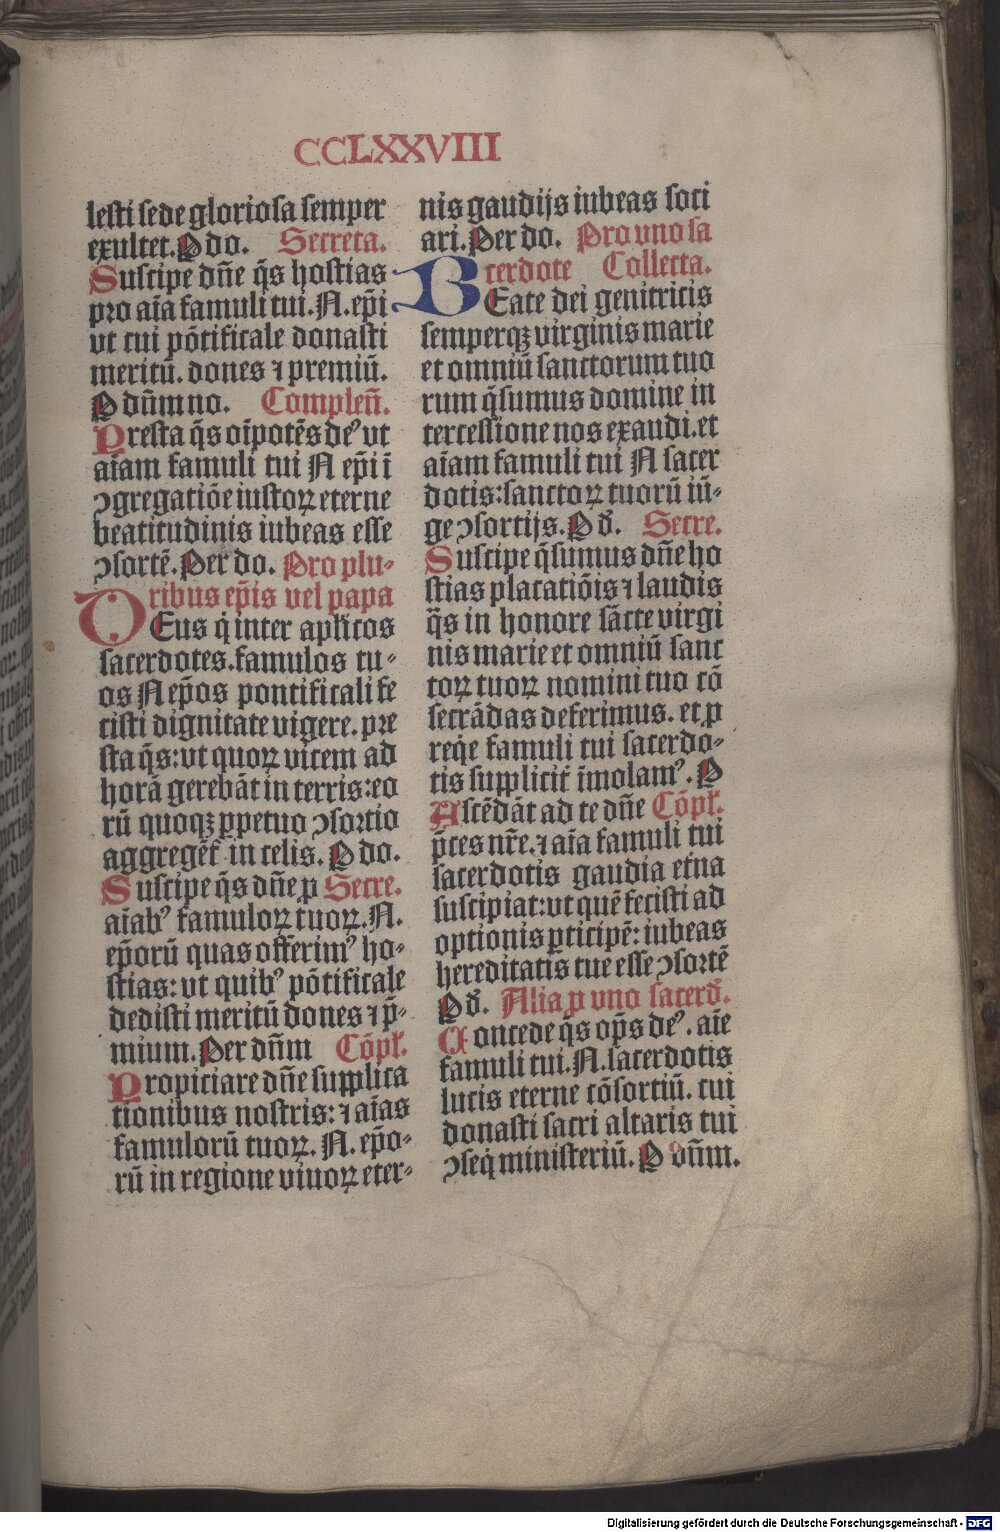 CCLXXVIII
lesti sede gloriosa semper
exultet. P do. Secreta.
Suscipe dñe q̃s hostias
pro aĩa famuli tui. N. ep̃i
vt cui põtificale donasti
meritũ. dones ⁊ premiũ.
P dñm no. Compleñ.
Presta q̃s oĩpotẽs deꝰ vt
aĩam famuli tui N ep̃i ĩ
ꝯgregatiõe iustoꝝ eterne
beatitudinis iubeas esse
ꝯsortẽ. Per do. Pro plu-
ribus ep̃is vel papa
DEus q̇ inter apl̃icos
sacerdotes. famulos tu-
os N ep̃os pontificali fe
cisti dignitate vigere. pre
sta q̃s: vt quoꝝ vicem ad
horã gerebãt in terris: eo
rũ quoqꝫ ꝑpetuo ꝯsortio
aggregẽt᷑ in celis. P do.
Suscipe q̃s dñe ꝓ Secre.
aĩabꝰ famuloꝝ tuoꝝ. N.
ep̃orũ quas offerimꝰ ho-
stias: vt quibꝰ põtificale
dedisti meritũ dones ⁊ p̃-
mium. Per dñm Cõpl̃.
Propiciare dñe supplica
tionibus nostris: ⁊ aĩas
famulorũ tuoꝝ. N. ep̃o-
rũ in regione viuoꝝ eter-
nis gaudijs iubeas soci
ari. Per do. Pro vno sa
cerdote Collecta.
BEate dei genitricis
semperqꝫ virginis marie
et omniũ sanctorum tuo
rum q̃sumus domine in
tercessione nos exaudi. et
aĩam famuli tui N sacer
dotis: sanctoꝝ tuorũ iũ-
ge ꝯsortijs. P d̃. Secre.
Suscipe q̃sumus dñe ho
stias placatiõis ⁊ laudis
q̃s in honore sãcte virgi
nis marie et omniũ sanc
toꝝ tuoꝝ nomini tuo cõ
secrãdas deferimus. et ꝓ
reqe famuli tui sacerdo-
tis supplicit᷑ ĩmolamꝰ. P
Ascẽdãt ad te dñe Cõpl̃.
p̃ces nr̃e. ⁊ aĩa famuli tui
sacerdotis gaudia et̃na
suscipiat: vt quẽ fecisti ad
optionis ꝑticipẽ: iubeas
hereditatis tue esse ꝯsortẽ
P d̃. Alia ꝓ vno sacerd̃.
Concede q̃s op̃s deꝰ. aĩe
famuli tui. N. sacerdotis
lucis eterne cõsortiũ. cui
donasti sacri altaris tui
ꝯseq̇ ministeriũ. P dñm.
Digitalisierung gefördert durch die Deutsche Forschungsgemeinschaft - DFG